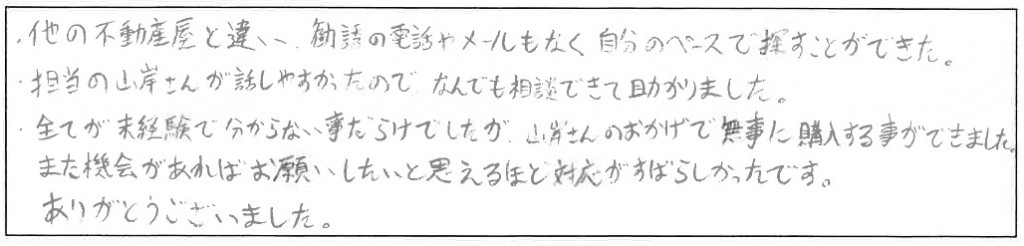 ・他の不動産屋と違い、勧誘の電話やメールもなく自分のペースで探すことができた。
・担当の山岸さんが話しやすかったので、なんでも相談できて助かりました。
・全てが未経験で分からない事だらけでしたが、山岸さんのおかげで無事に購入する事ができました。
また機会があればお願いしたいと思えるほど対応がすばらしかったです。
ありがとうございました。